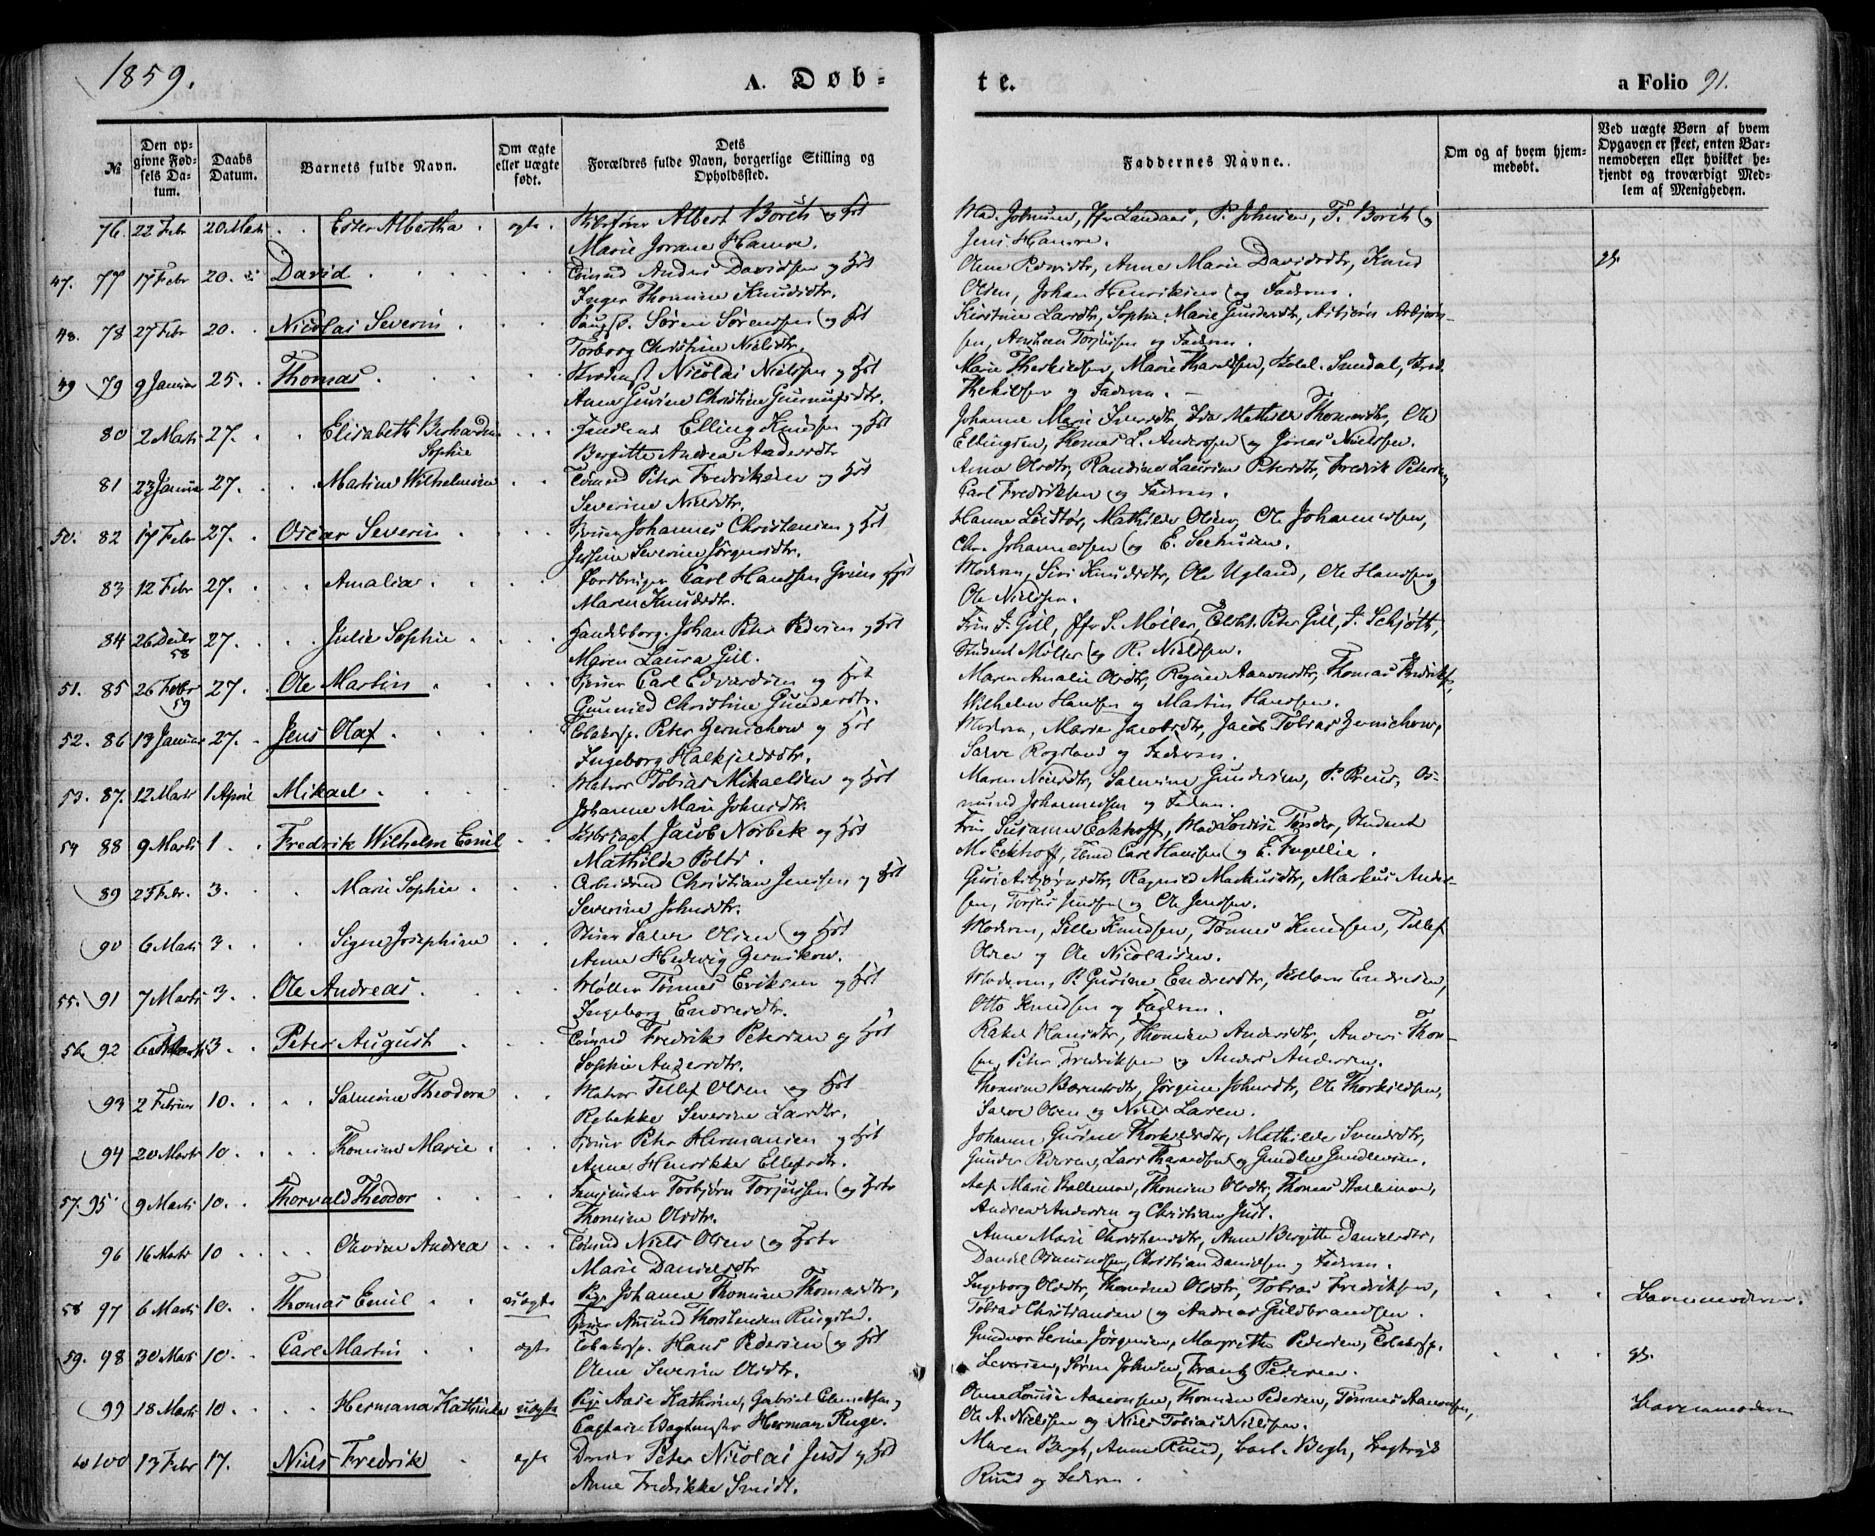 1859.
A. Døb=
te.
a Folio 91.
№
Den opgivne Fødsels Datum.
Daabs Datum.
Barnets fulde Navn.
Om ægte eller uægte født.
Dets Forældres fulde Navn, borgerlige Stilling og Opholdssted.
Faddernes Navne.
Om og af hvem hjemmedøbt.
Ved uægte Børn af hvem Opgaven er skeet, enten Barnemoderen eller hvilket bekjendt og troværdigt Medlem af Menigheden.
76. 22 Febr 20 Marti Ester Albertha. ægte. Albert Borith og Hst
Marie Jorane Hamre.
Mad. Johnsen, Jfr Landaas, P. Johnsen, T. Borith og
Jens Hamre.
47. 77 17 Febr 20. David Tømmd Anders Davidsen og Hst
Inger Thomine Knudsdtr.
Olene Pedersdtr, Anne Marie Davidsdtr, Knud
Olsen, Johan Henriksen og Faderen.
48. 78 27 Febr 20. Nicolai Severin Søren Sørensen og Hst
Torborg Christine Nielsdtr.
Kirstine Larsdtr, Sophie Marie Gundersdtr, Asbjørn Asbjørn-
sen, Torjusen og Faderen.
49 79 9 Januar 25. Thomas. Nicolai Nielsen og Hst
Anne Gurine Christine
Marie Therkildsen, Marie Tharaldsen, Sundal,
Therkildsen og Faderen.
80 2 Marti 27. Elisabeth Berhardine
Sophie
Elling Knudsen og Hst
Bergitte Andrea Andersdtr
Johanne Marie Iversdtr, Ida Mathilde Thomasdtr, Ole
Ellingsen, Thomas L. Anderssen og Jonas Nielsen.
81 23 Januar 27. Martine Wilhelmine Tømmd Peter Fredriksen og Hst
Severine Nielsdtr.
Anne Olsdtr, Randine Laurine Petersdtr, Fredrik Petersen,
Carl Fredriksen og Faderen.
50. 82 17 Febr 27. Oscar Severin Johannes Christensen og Hst
Severine Jørgensdtr.
Hanne Mathilde Olsen, Ole Johannessen,
Chr. Johannessen og E. Seehusen.
83 12 Febr 27. Amalia. Carl Hanssen Grim og Hst
Maren Knudsdtr.
Moderen, Siri Knudsdtr, Ole Ugland, Ole Hanssen og
Ole Nielsen.
84 26 Decbr 58 27. Julie Sophie Handelsborg. Johan Peter Pedersen og Hst
Maren Laura Gill.
Frue J. Gill, Jfr S. Møller, Peter Gill, J. Schjøtt,
Student Møller og R. Nielsen.
51. 85 26 Febr 59 27. Ole Martin Carl Edvardsen og Hst
Gunnild Christine Gundersdtr.
Maren Amalie Olsdtr, Regine Aanonsdtr, Thomas Fredriksen,
Wilhelm Hansen og Martin Hansen.
52. 86 19 Januar 27. Jens Olaf Peter Jernichow og Hst
Ingeborg Halkjeldsdtr.
Moderen, Marie Jacobsdtr, Jacob Tobias Jernichow,
Salve Rogsland og Faderen.
53. 87. 12 Marti 1 April Mikael Matros Tobias Mikaelsen og Hst
Johanne Marie Johnsdtr.
Maren Nielsdtr, Salmine Gundersen, P. Os-
mund Johannessen og Faderen.
54 88 9 Marti 1. Fredrik Wilhelm Emil Jacob Norbek og Hst
Mathilde Boltz.
Frue Susanne Eckhoff, Mad Lovise Tønder, Student
M. Eckhoff, Carl Hanssen og E. Fugellie.
89 25 Febr. 3. Marie Sophie Arbeidsmd Christian Jenssen og Hst
Severine Johnsdtr.
Guri Asbjørnsdtr, Ragnild Markusdtr, Markus Ander-
sen, Torjus Jenssen og Ole Jenssen.
90 6 Marti 3. Signe Josephine Salve Olsen og Hst
Anne Hedvig Jernikow.
Moderen, Sille Knudsen, Tønnes Knudsen, Tellef
Olsen og Ole Nicolaisen.
55. 91 7 Marti 3. Ole Andreas. Møller Tønnes Eriksen og Hst
Ingeborg Endresdtr.
Moderen, P. Gurine Endresdtr, Endresen,
Otto Knudsen og Faderen.
56. 92 3. Peter August Tømmd Fredrik Petersen og Hst
Sophie Andersdtr.
Rakel Hansdtr, Thomine Andersdtr, Anders Thom-
sen, Peter Fredriksen og Anders Andersen.
93 2 Februar 10. Salmine Theodora Matros Tellef Olsen og Hst
Rebekke Severine Larsdtr.
Thomine Jørgine Johnsdtr, Ole Thorkildsen,
Salve Olsen og Niels Larsen.
94 20 Marti 10. Thomine Marie Peter Hermansen og Hst
Anne Henrikke Ellefsdtr.
Johanne Gurine Thorkildsdtr, Mathilde Svendsdtr,
Gunder Pedersen, Lars Tharaldsen og Gundle Gundersen.
57. 95 9 Marti 10. Thorvald Theodor Torbjørn Torjussen og Hst
Thomine Olsdtr.
Marie Stallemoe, Thomine Olsdtr, Thomas Stallemoe,
Andreas Andersen og Christian Just.
96 16 Marti 10 Olevine Andrea Tømmd Niels Olsen og Hst
Marie Danielsdtr
Anne Marie Christensdtr, Anne Bergitte Danielsdtr,
Daniel Osmundsen, Christian Danielsen og Faderen.
58 97 6 Marti 10. Thomas Emil uægte Pige Johanne Thomine Thomasdtr,
Amund Thorstensen Ringstad.
Ingeborg Olsdtr, Thomine Olsdtr, Tobias Fredriksen,
Tobias Christiansen og Andreas Guldbrandsen.
Barnemoderen.
59. 98 30 Marti 10. Carl Martin ægte Hans Pedersen og Hst
Olene Severine Olsdtr.
Gundvor Serine Jørgensen, Margrethe Pedersen,
Seversen, Søren Johnsen, Frantz Pedersen.
99 18 Marti 10. Hermana Kathinka uægte Pige Aase Kathrine, Gabriel Clemetsen og
Captain Vagtmester Herman Ruge.
Olene Lovise Aanonsen, Thomine Pedersen, Tønnes Aanonsen,
Ole A. Nielsen og Niels Tobias Nielsen.
Barnemoderen
60 100 13 Febr 17. Niels Fredrik ægte Peter Nicolai Just og Hst
Anne Fredrikke Smidt.
Maren Bergh, Anne Ruud, Carl Bergh,
Ruud og Faderen.